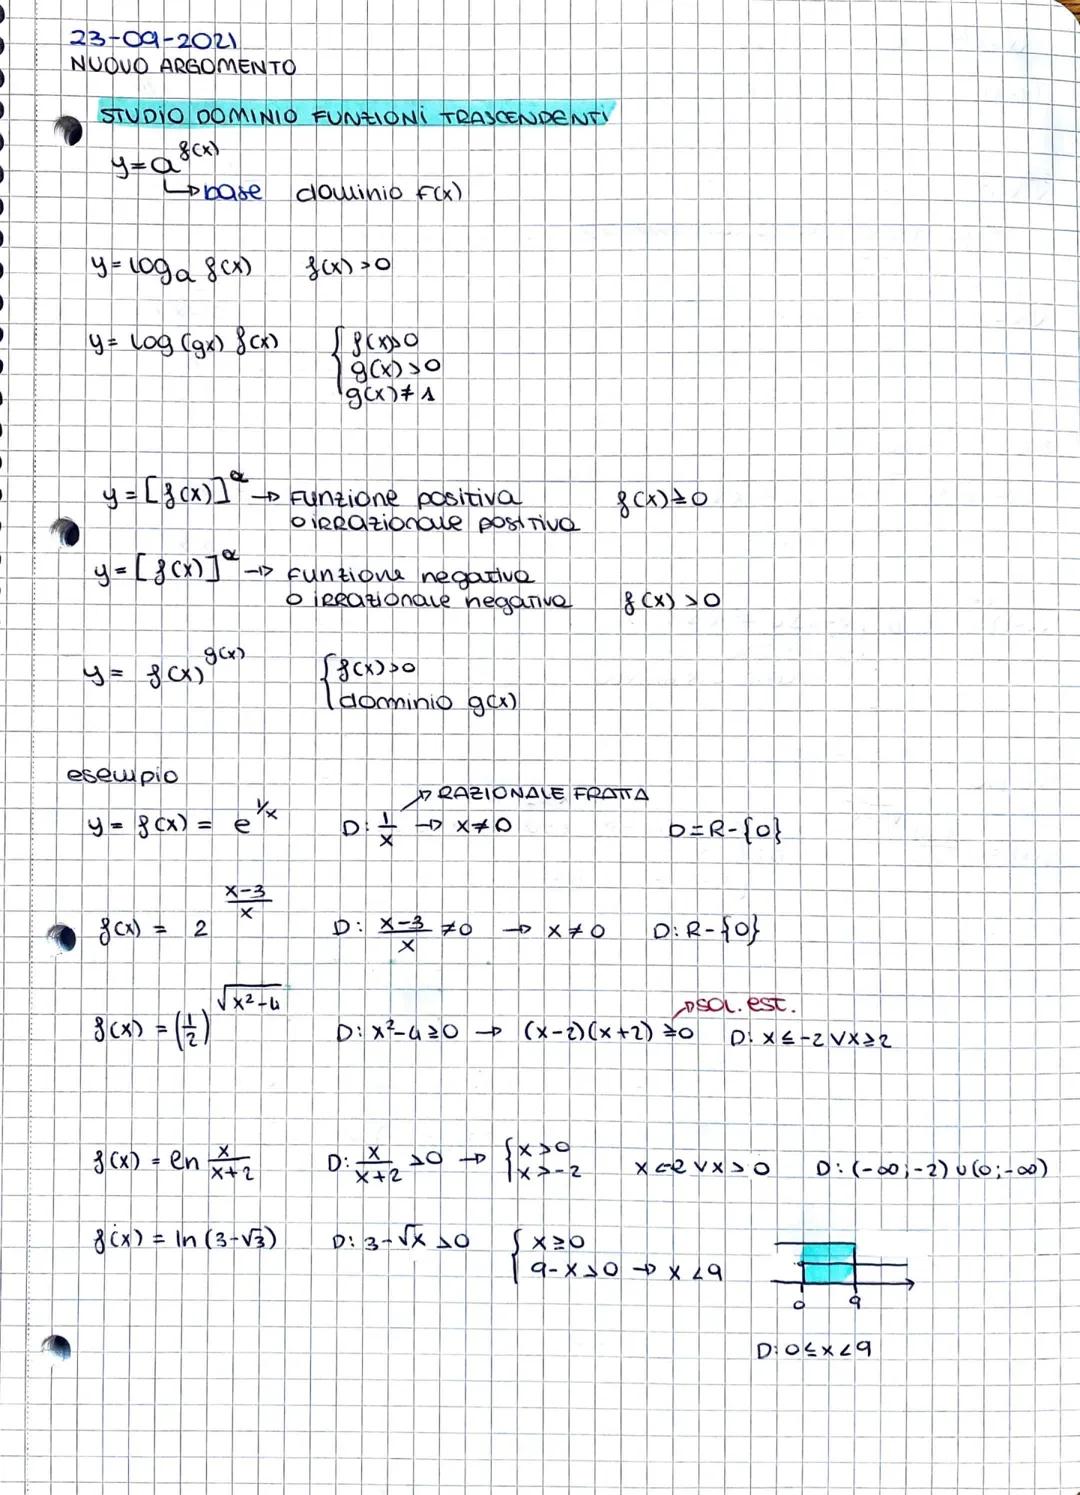 23-09-2021
NUOVO ARGOMENTO
STUDIO DOMINIO FUNZIONI TRASCENDENTI
y=a^f(x)
↳base dominio f(x)
y=log_a f(x) f(x)>0
y= log (gx) f(x) { f(x)>0
g(x)>0
g(x)≠1
y=[f(x)]^α → Funzione positiva f(x)≥0
o irrazionale positiva
y=[f(x)]^α → funzione negativa
o irrazionale negativa f(x)>0
y= f(x)^g(x) { f(x)>0
dominio g(x)
esempio
→ RAZIONALE FRATTA
y= f(x) = e^1/x D: 1/x → x≠0 D=R-{0}
f(x) = 2^(x-3)/x D: (x-3)/x ≠0 → x≠0 D: R-{0}
→SOL. est.
f(x) = (1/2)^√x²-4 D: x²-4≥0 → (x-2)(x+2) ≥0 D: x≤-2 ∨ x≥2
f(x) = en x/(x+2) D: x/(x+2) >0 → { x>0 x<-2 ∨ x>0 D: (-∞;-2) ∪ (0;-∞)
x>-2
f(x) = ln (3-√3) D: 3-√x >0 { x≥0
9-x>0 → x<9
0 9
D: 0≤x<9